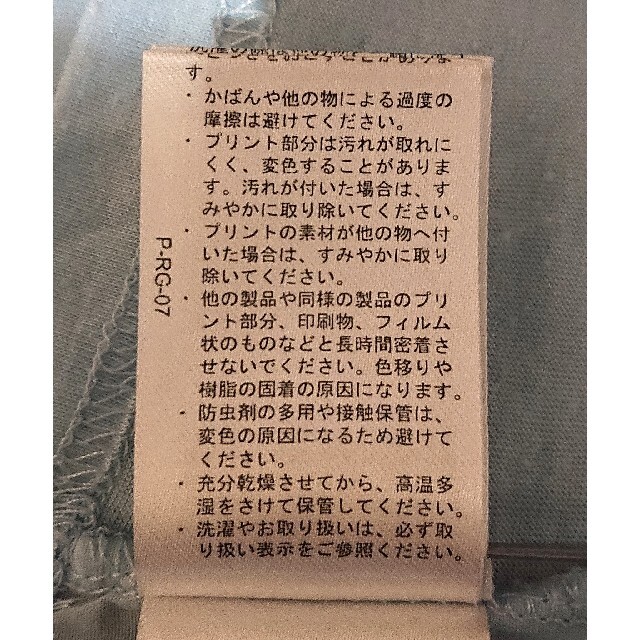 す。
・かばんや他の物による過度の
摩擦は避けてください。
・プリント部分は汚れが取れに
くく、変色することがありま
す。汚れが付いた場合は、す
みやかに取り除いてください。
・プリントの素材が他の物へ付
いた場合は、すみやかに取り
除いてください。
・他の製品や同様の製品のプリ
ント部分、印刷物、フィルム
状のものなどと長時間密着さ
せないでください。色移りや
樹脂の固着の原因になります。
・防虫剤の多用や接触保管は、
変色の原因になるため避けて
ください。
・充分乾燥させてから、高温多
湿をさけて保管してください。
・洗濯やお取り扱いは、必ず取
り扱い表示をご参照ください。
P-RG-07